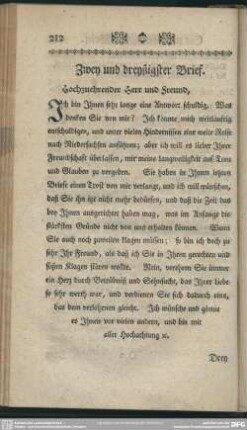 212
Zwey und dreyßigster Brief.
Hochzuehrender Herr und Freund,
Ich bin Ihnen sehr lange eine Antwort schuldig. Was
denken Sie von mir? Ich könnte mich weitläuftig
entschuldigen, und unter vielen Hindernissen eine weite Reise
nach Niedersachsen anführen; aber ich will es lieber Ihrer
Freundschaft überlassen, mir meine Langweiligkeit auf Treu
und Glauben zu vergeben. Sie haben in Ihrem letzten
Briefe einen Trost von mir verlangt, und ich will wünschen,
daß Sie ihn itzt nicht mehr bedürfen, und daß die Zeit das
bey Ihnen ausgerichtet haben mag, was im Anfange die
stärksten Gründe nicht von uns erhalten können. Wenn
Sie auch noch zuweilen klagen müssen; so bin ich doch zu
sehr Ihr Freund, als daß ich Sie in Ihren gerechten und
süßen Klagen stören wollte. Nein, verehren Sie immer
ein Herz durch Betrübniß und Sehnsucht, das Ihrer Liebe
so sehr werth war, und verdienen Sie sich dadurch eins,
das dem verlohrnen gleicht. Ich wünsche und gönne
es Ihnen vor vielen andern, und bin mit
aller Hochachtung ꝛc.
Drey